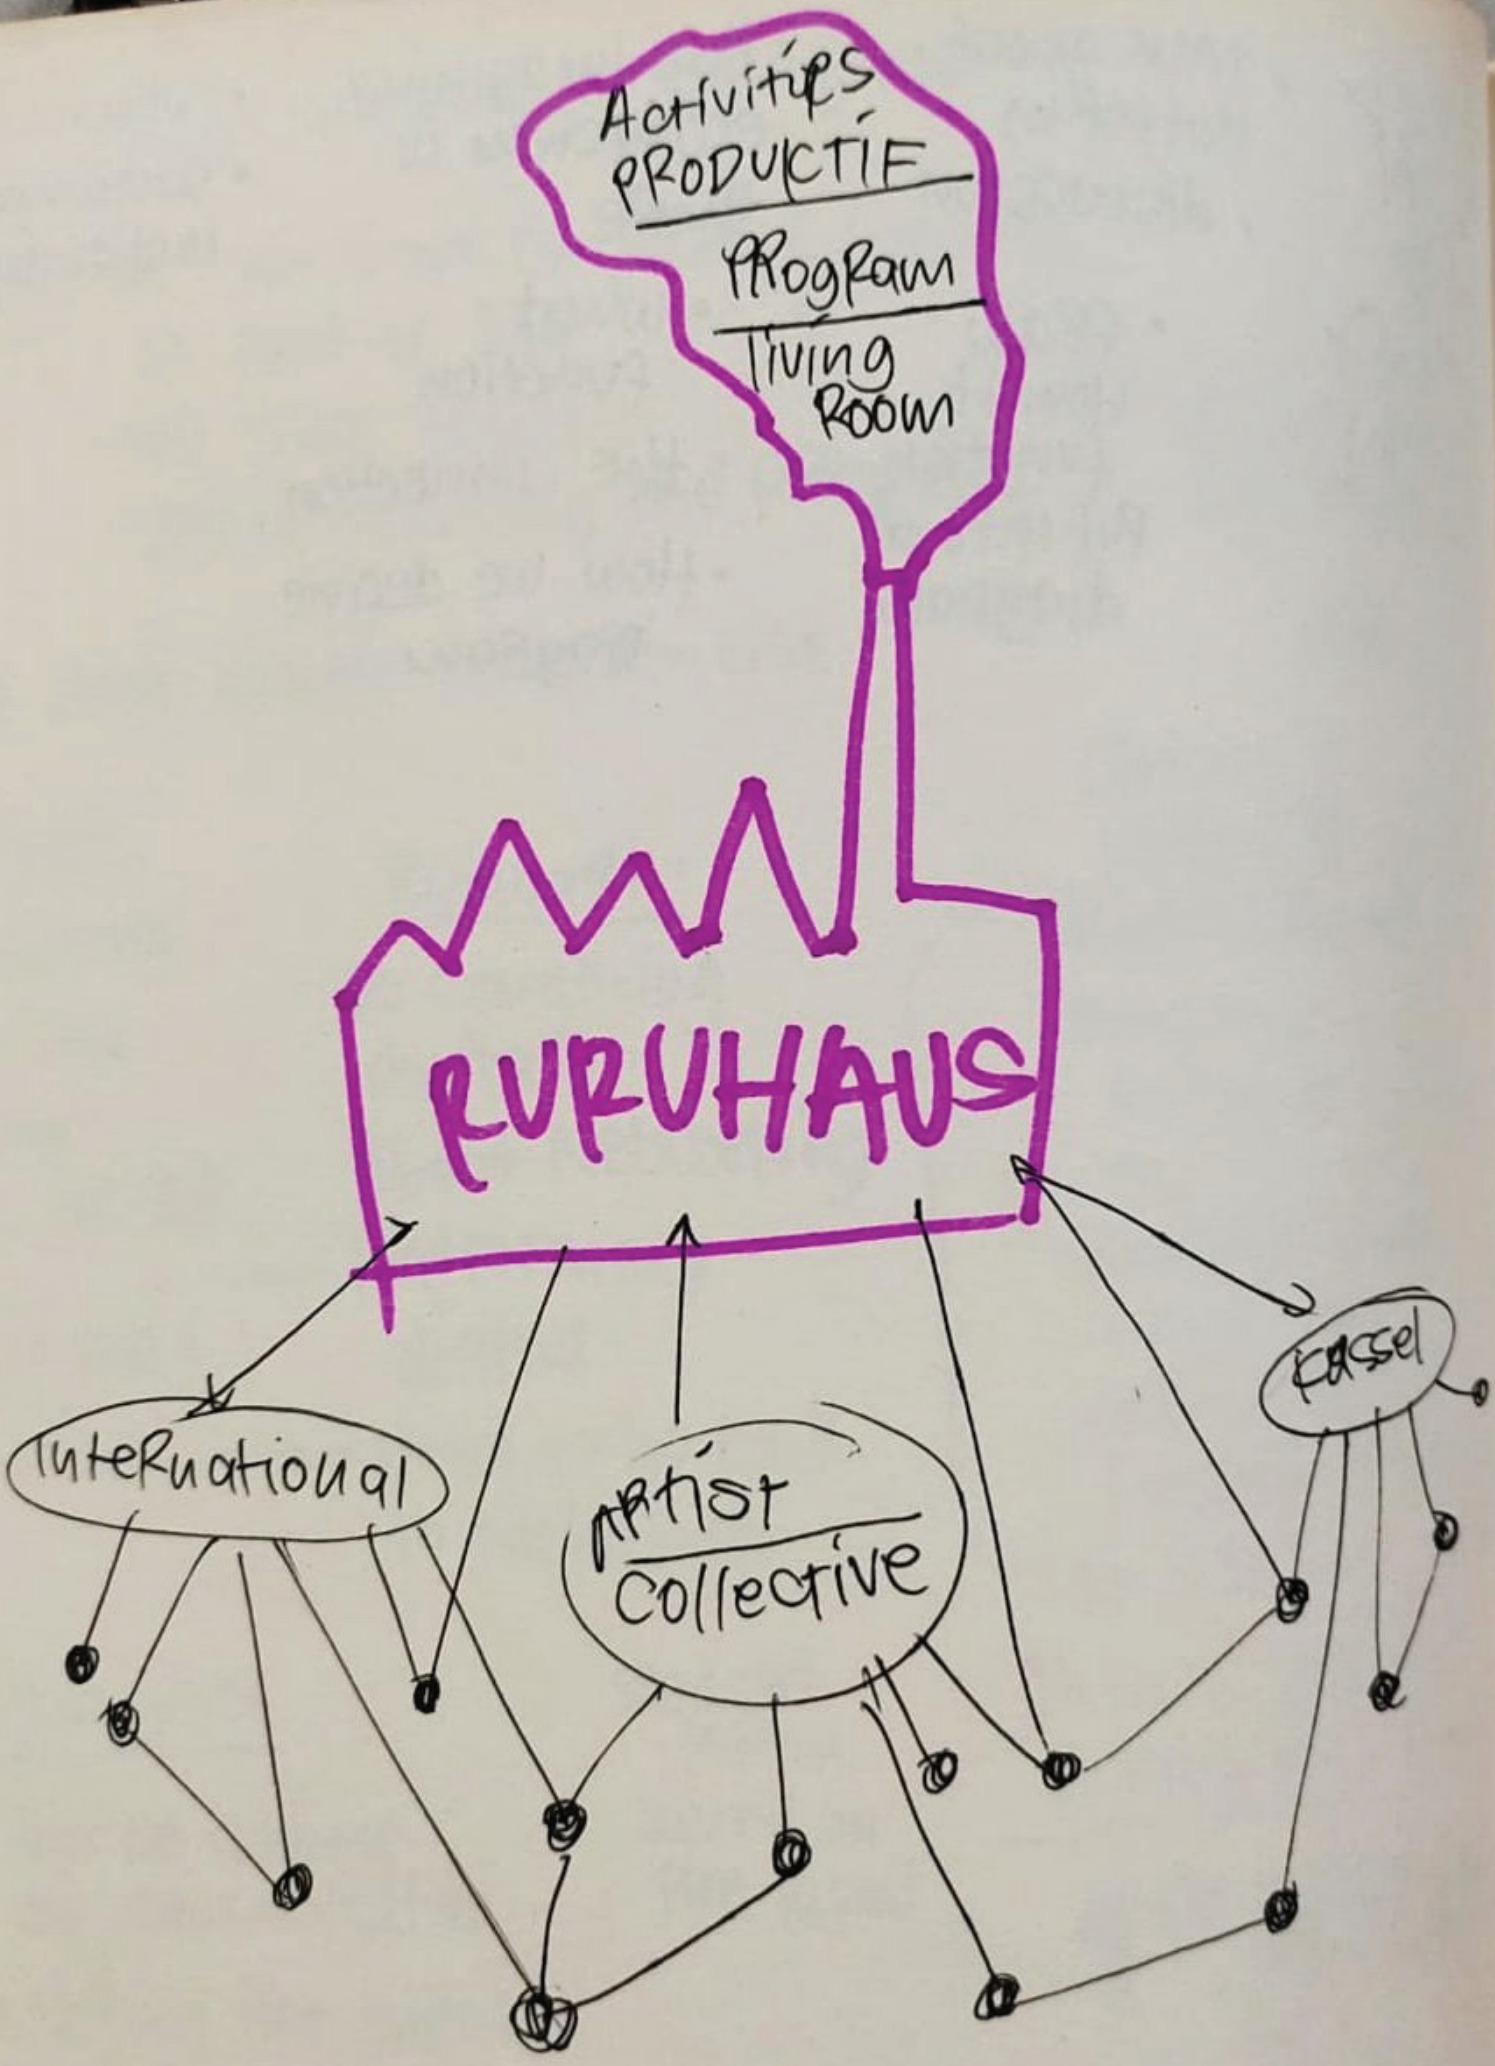 Activities
PRODUCTIF
PROgRam
living
Room
RURUHAUS
InteRnational
ARtist
Collective
Kassel